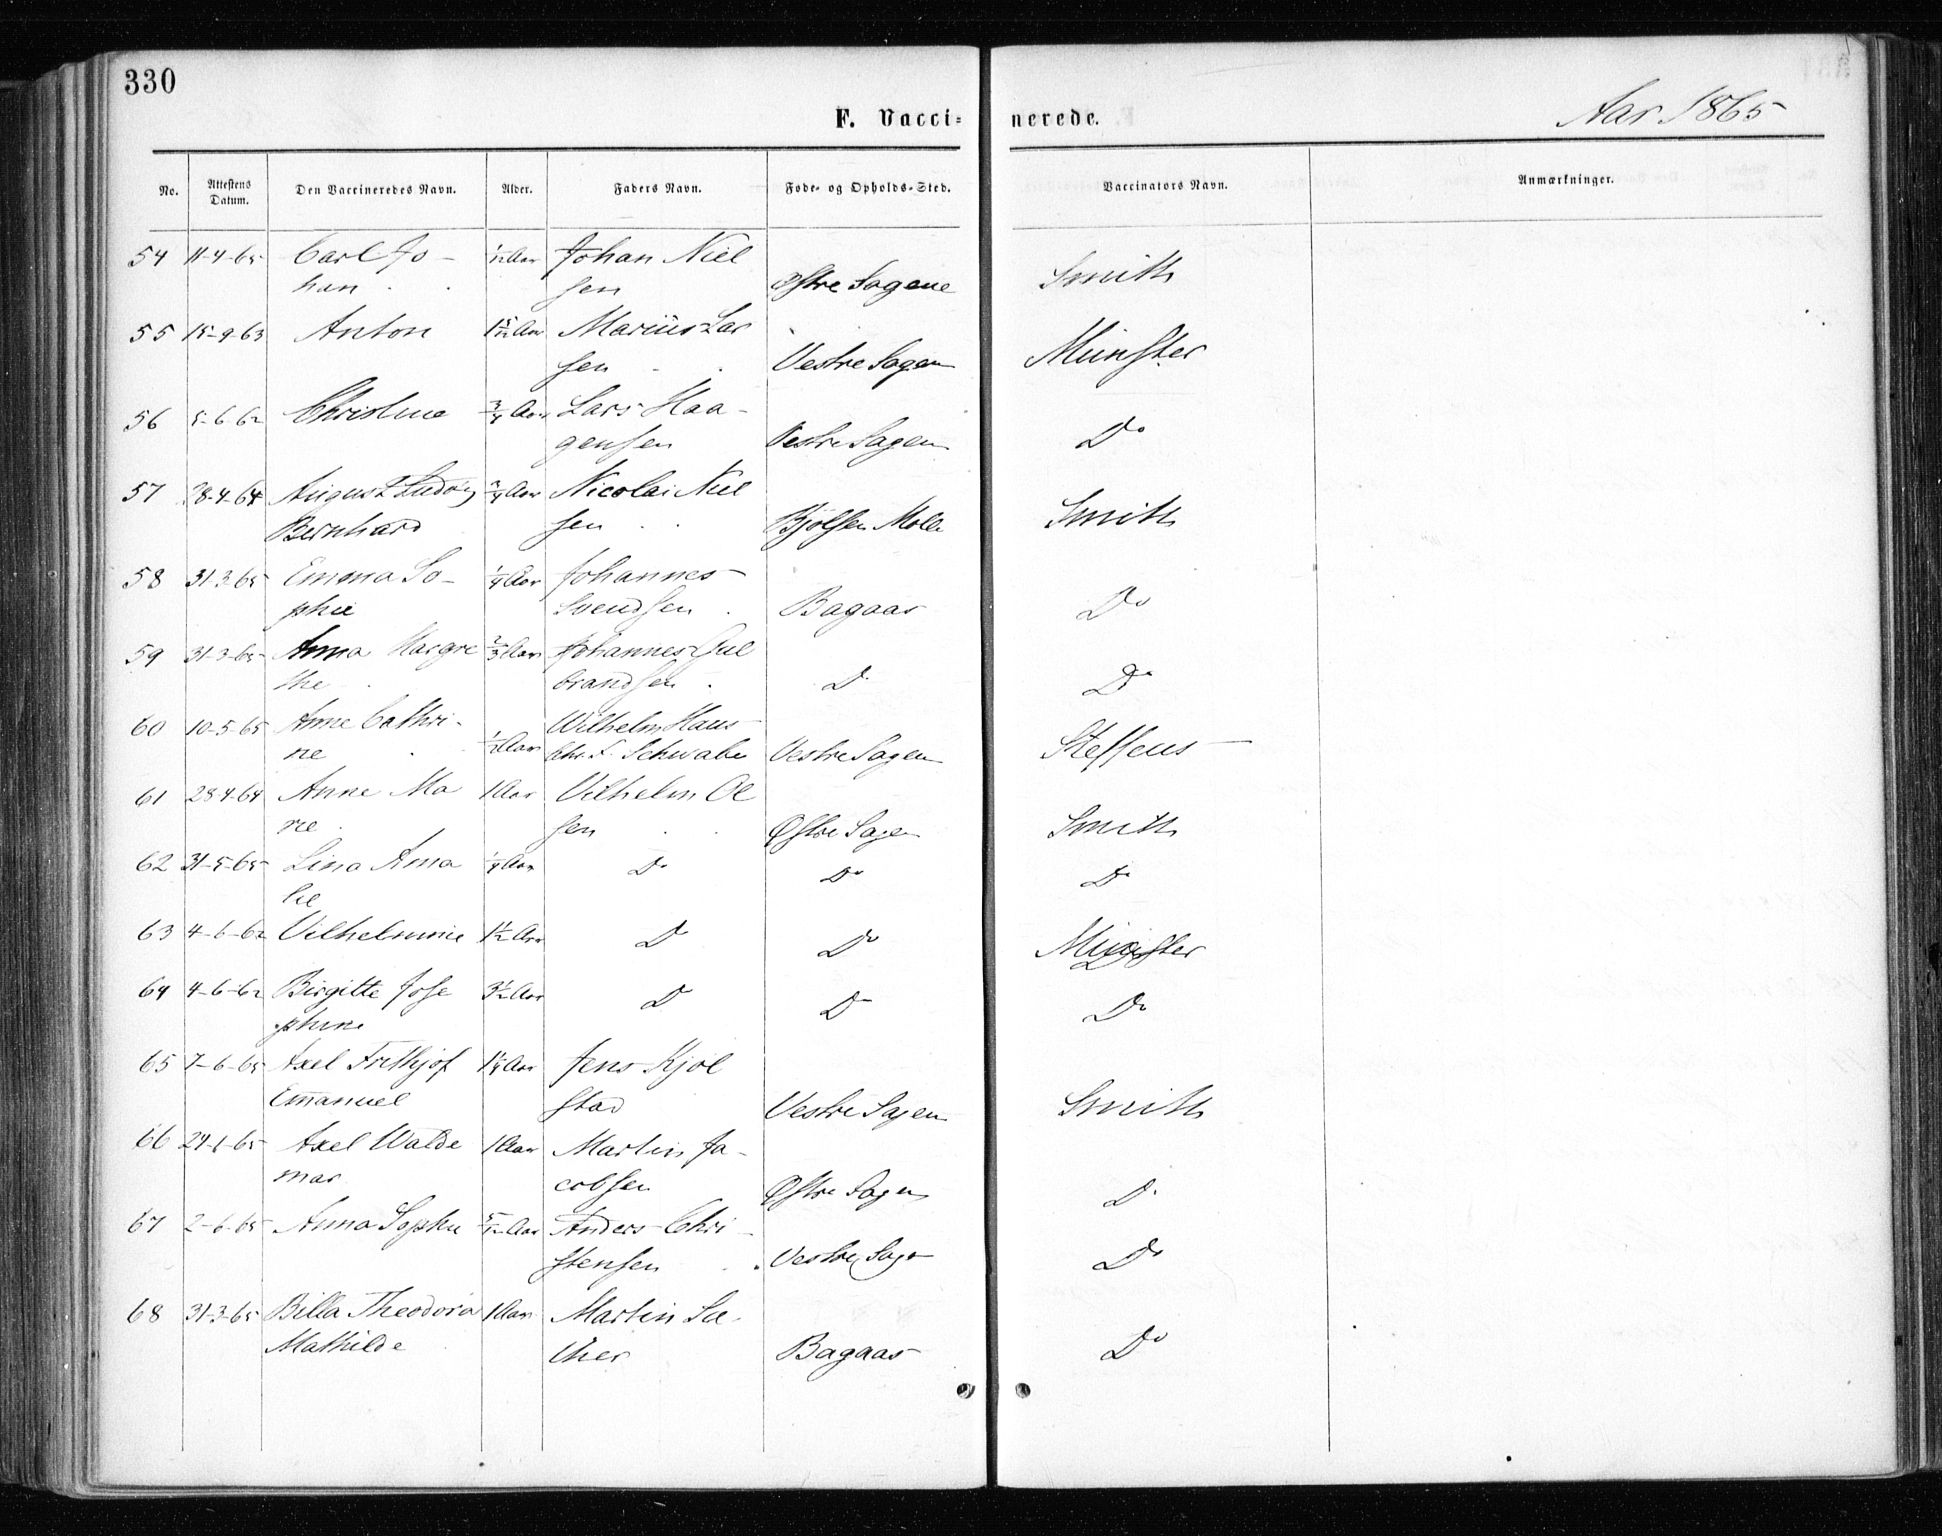 330
F. Vacci-nerede. Aar 1865
No. Attestens Datum. Den Vaccineredes Navn. Alder. Faders Navn. Føde- og Opholds-Sted. Vaccinators Navn. Anmærkninger.
54 11-4-65 Carl Jo- Aar Johan Niel
han sen Østre Sagene Smith
55 15-9-63 Anton 1 5/12 Aar Marius Lar
sen Vestre Sagen Münster
56 5-6-62 Christine 3/4 Aar Lars Haa-
gensen Vestre Sagen Do
57 28-4-64 August Ludvig 3/4 Aar Nicolai Niel
Bernhard sen Bjølsen Mølle Smith
58 31-3-65 Emma So- 1/4 Aar Johannes
phie Svendsen Bagaas Do
59 31-3-65 Anna Margre 2/3 Aar Johannes Gul
the brandsen D Do
60 10-5-65 Anne Cathri- Wilhelm Hans
ne 1/2 Aar Chr. F. Schwabe Vestre Sagen Steffens
61 28-4-64 Anne Ma 1 Aar Vilhelm Ol
rie sen Østre Sagen Smith
62 31-5-65 Lina Ama 1/4 Aar Do Do Do
lie
63 4-6-62 Vilhelmine 1 1/2 Aar D Do Münster
64 4-6-62 Birgitte Jose 3 1/2 Aar D D Do
phine
65 7-6-65 Axel Frithjof 1 1/4 Aar Jens Kjol
Emanuel stad Vestre Sagen Smith
66 24-1-65 Axel Walde 1 Aar Martin Ja-
mar cobsen Østre Sagen D
67 2-6-65 Anna Sophie 5/12 Aar Anders Chri-
stensen Vestre Sage Do
68 31-3-65 Billa Theodora 1 Aar Martin Sæ-
Mathilde ther Bagaas Do